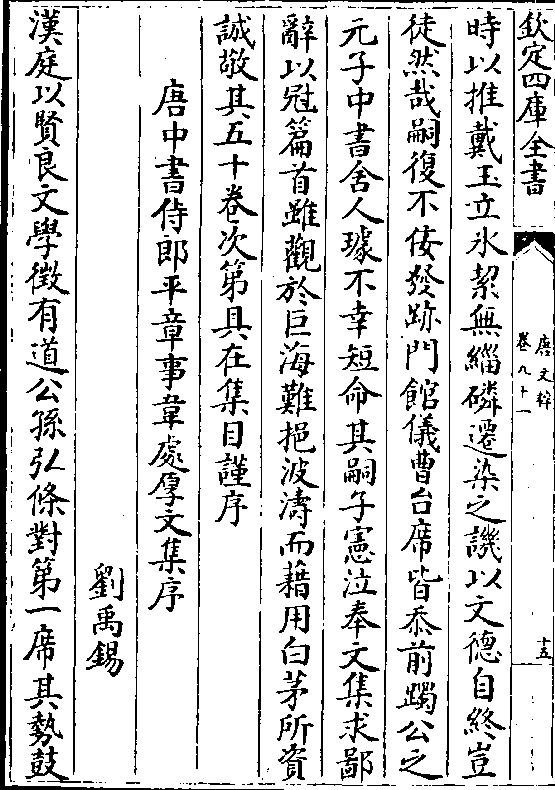 欽定四庫全書
唐文粹
卷九十一
十五
時以推戴玉立氷絜無緇磷遷染之譏以文德自終豈
徒然哉嗣復不佞發跡門館儀曹台席皆忝前躅公之
元子中書舍人璩不幸短命其嗣子憲泣奉文集求鄙
辭以冠篇首雖觀於巨海難挹波濤而藉用白茅所資
誠敬其五十卷次第具在集目謹序
唐中書侍郎平章事韋處厚文集序
劉禹錫
漢庭以賢良文學徵有道公孫弘條對第一席其勢鼓